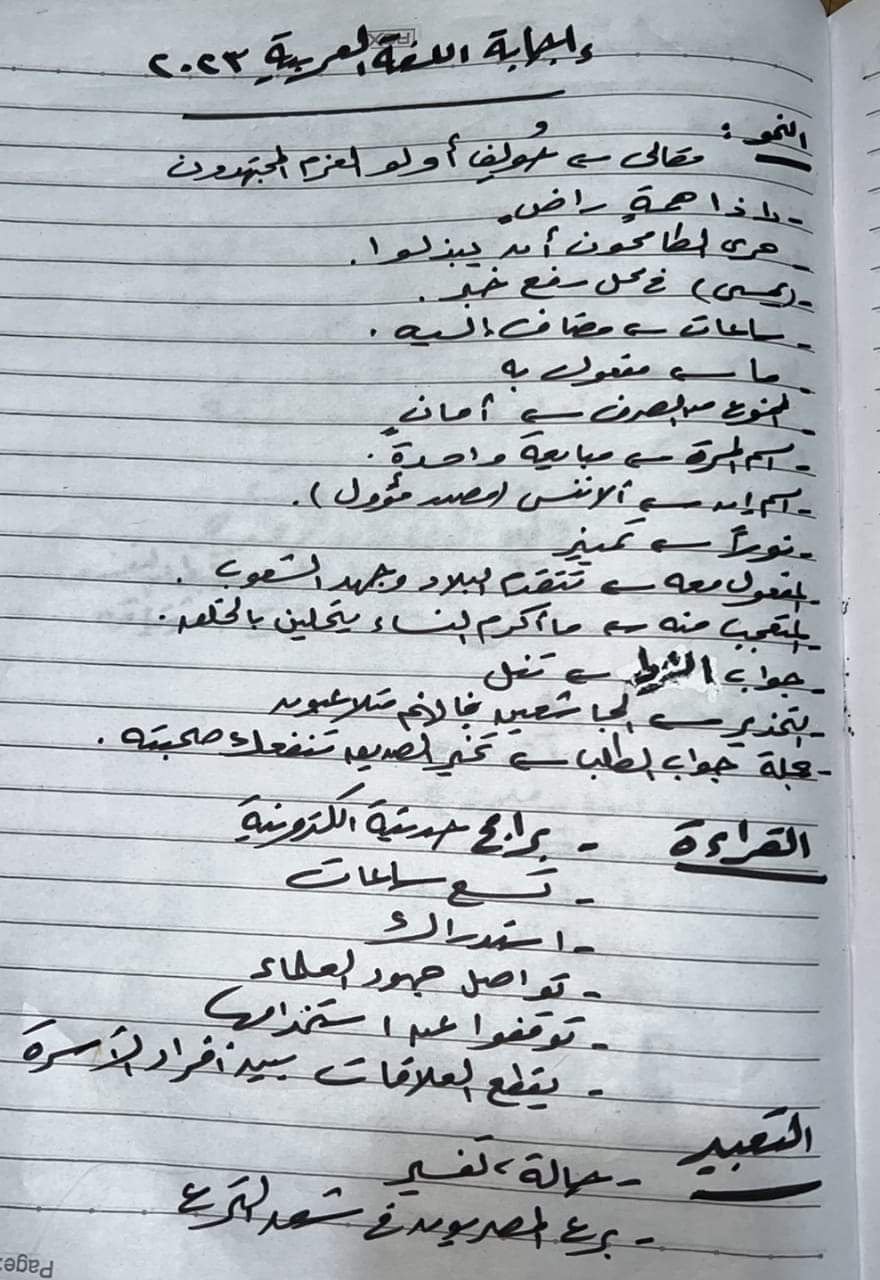 إجابة اللغة العربية ٢٠٢٣
النحو :
مقالى ← أولو العزم المجتهدون
- ياذا همةٍ راضٍ
- حرى الطامحون أن يبذلوا .
- (يمسى) فى محل رفع خبر .
- ساعات ← مضاف إليه .
- ما ← مفعول به
- الممنوع من الصرف ← أمانٍ
- اسم المرة ← مبايعة واحدة .
- اسم إن ← ألا ننسى (مصدر مؤول) .
- نوراً ← تمييز
- المفعول معه ← تتقدم البلاد وجهد الشعوب .
- المتعجب منه ← ما أكرم النساء يتحلين بالخلق .
- جواب الشرط ← تنل
- التحذير ← الجاشعين فإنهم متلاعبون
- جملة جواب الطلب ← تخير الصديق تنفعك صحبته .
القراءة - برامج حديثة الكترونية
- تسع ساعات
- استدراك
- تواصل جهود العلماء
- توقفوا عن استخدامها
- يقطع العلاقات بين أفراد الأسرة
التعبير - حالة ، تفسير
- برع المصريون فى شق الترع
Page: